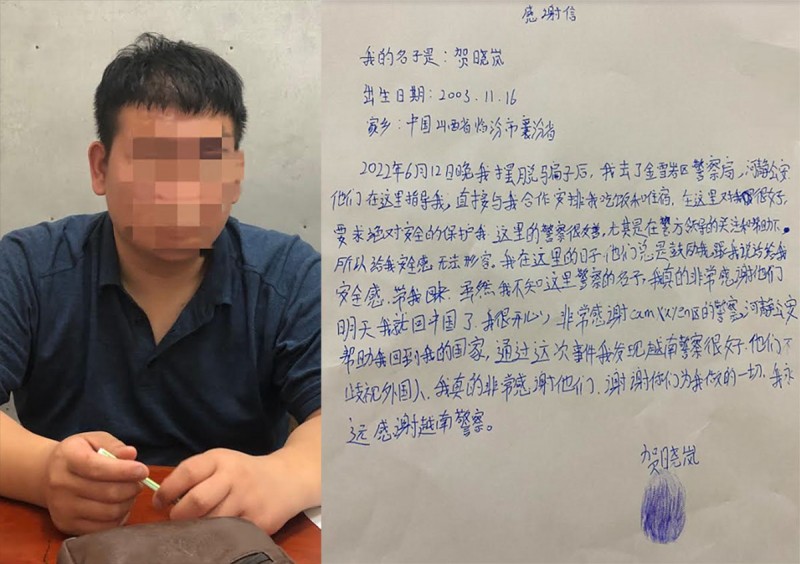 感谢信
我的名子是：贺晓岚
出生日期：2003.11.16
家乡：中国山西省临汾市襄汾省
2022年6月12日晚我才摆脱骗子后，我去了金雪岩区警察局，河静公安
他们在这里指导我，直接与我合作安排我吃饭和住宿，在这里对我很好，
要求绝对安全的保护我，这里的警察很友善，尤其是在警方领导的关注和帮助下。
所以给我安全感无法形容。我在这里的日子他们总是鼓励我，跟我说话给我
安全感，带我回来，虽然我不知这里警察的名子，我真的非常感谢他们
明天我就回中国了，我很开心，非常感谢cam区的警察，河静公安
帮助我回到我的国家，通过这次事件我发现越南警察很好，他们不
歧视外国人，我真的非常感谢他们，谢谢你们为我做的一切，我永
远感谢越南警察。
贺晓岚